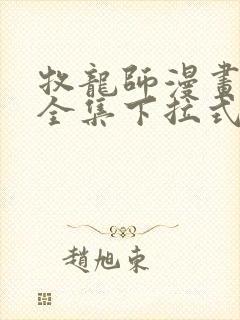 牧龍師漫畫
全集下拉式
趙旭東